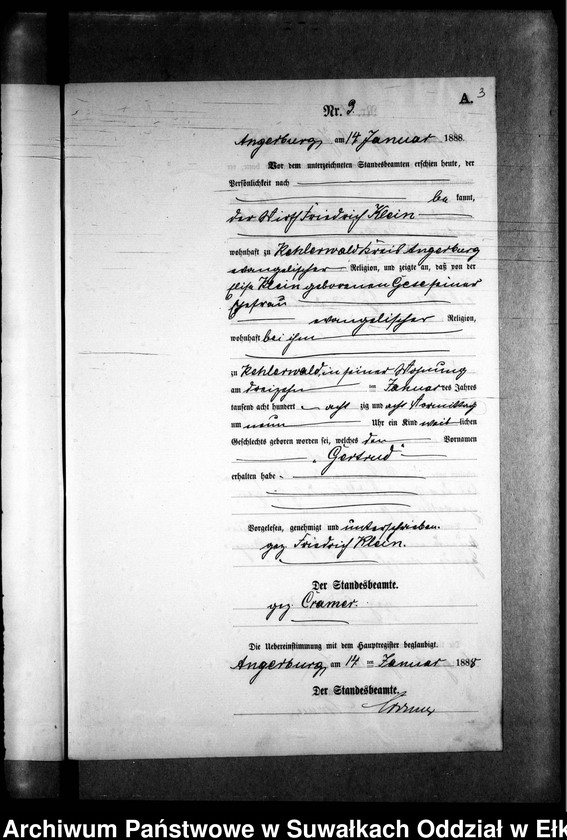 A. 3
Nr. 9.
Angerburg, am 14 Januar 1888.
Vor dem unterzeichneten Standesbeamten erschien heute, der
Persönlichkeit nach
be kannt,
der Wirth Friedrich Klein
wohnhaft zu Kehlerwald Kreis Angerburg
evangelischer Religion, und zeigte an, daß von der
Klein geborenen seiner
Ehefrau
evangelischer Religion,
wohnhaft bei ihm
zu Kehlerwald, in seiner Wohnung
am dreizehn ten Januar des Jahres
tausend acht hundert acht zig und acht Vormittag
um neun Uhr ein Kind weib lichen
Geschlechts geboren worden sei, welches den Vornamen
„Gertrud“
erhalten habe
Vorgelesen, genehmigt und unterschrieben.
gez Friedrich Klein.
Der Standesbeamte.
gez Cramer.
Die Uebereinstimmung mit dem Hauptregister beglaubigt.
Angerburg, am 14 ten Januar 1888
Der Standesbeamte.
Cramer
Archiwum Państwowe w Suwałkach Oddział w Ełk